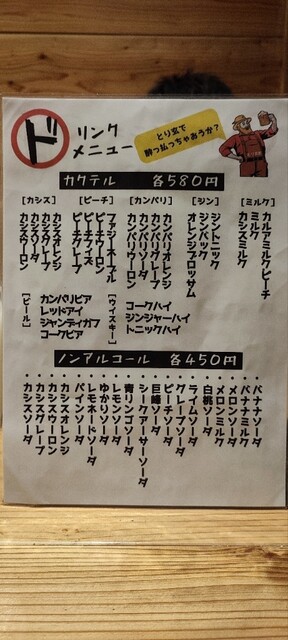 ドリンク
メニュー
とり玄で
酔っ払っちゃおうか？
カクテル 各580円
[ミルク]
カルアミルクピーチ
ミルク
カシスミルク
[ジン]
ジントニック
ジンバック
オレンジブロッサム
[カンパリ]
カンパリオレンジ
カンパリソーダ
カンパリグレープ
カンパリウーロン
[ピーチ]
ファジーネーブル
ピーチウーロン
ピーチフィズ
ピーチグレープ
[カシス]
カシスオレンジ
カシスグレープ
カシスソーダ
カシスウーロン
[ウイスキー]
コークハイ
ジンジャーハイ
トニックハイ
[ビール]
カンパリビア
レッドアイ
シャンディガフ
コークビア
ノンアルコール 各450円
・バナナソーダ
・バナナミルク
・メロンソーダ
・メロンミルク
・白桃ソーダ
・ライムソーダ
・グレープソーダ
・ピーチソーダ
・巨峰ソーダ
・シークアーサーソーダ
・青リンゴソーダ
・レモンソーダ
・ゆかりソーダ
・レモネードソーダ
・パインソーダ
・カシスオレンジ
・カシスウーロン
・カシスグレープ
・カシスソーダ